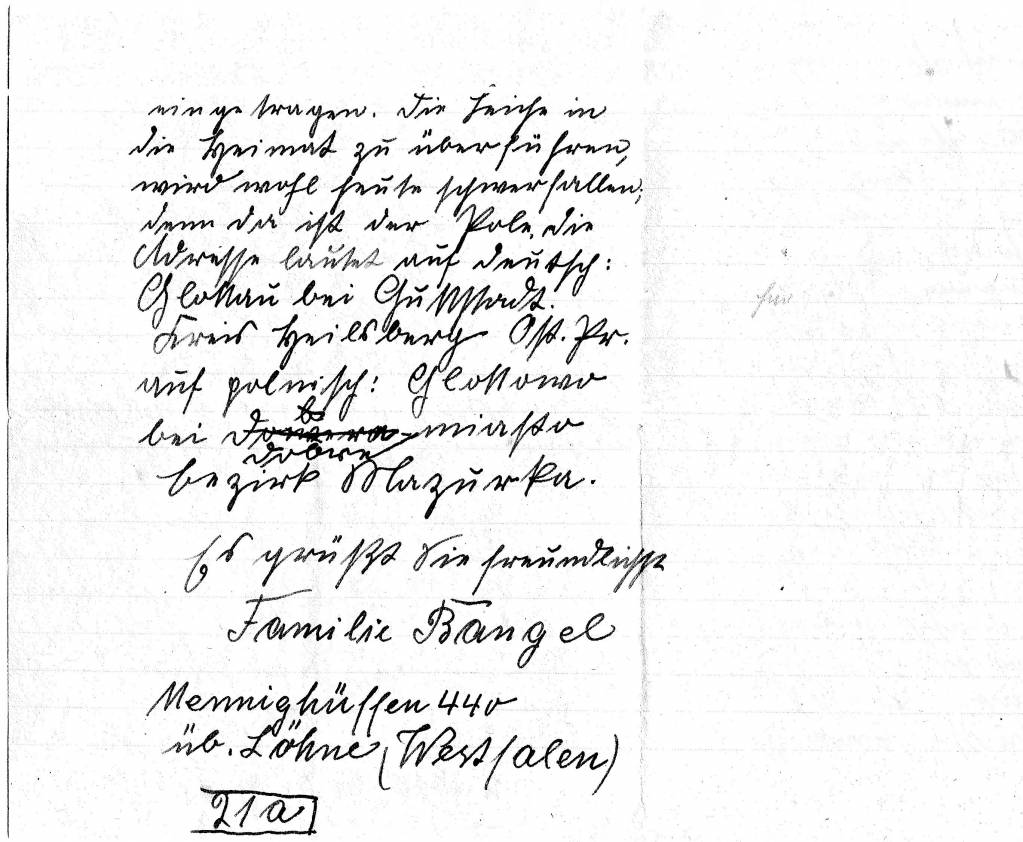 eingetragen. Die Leiche in
die Heimat zu überführen,
wird wohl heute schwerfallen,
denn da ist der Pole. Die
Adresse lautet auf deutsch:
Glottau bei Guttstadt.
Kreis Heilsberg Ost. Pr.
auf polnisch: Glottowo
bei dobre-miasto
bezirk Mazurka.
Es grüßt Sie freundlichst
Familie Bangel
Mennighüffen 440
üb. Löhne (Westfalen)
21a